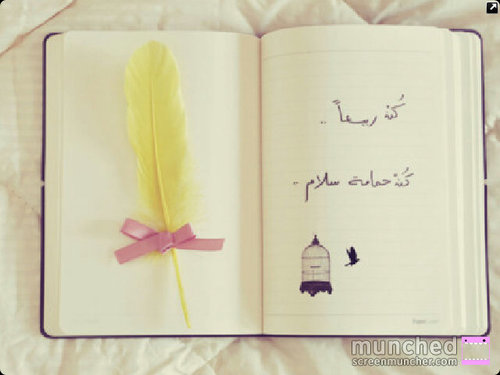 كُنْ ربيعاً ..
كُنْ حمامة سلام ..
munched
screenmuncher.com